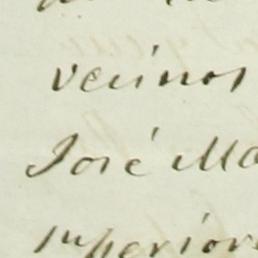 vecinos
José Ma
superior